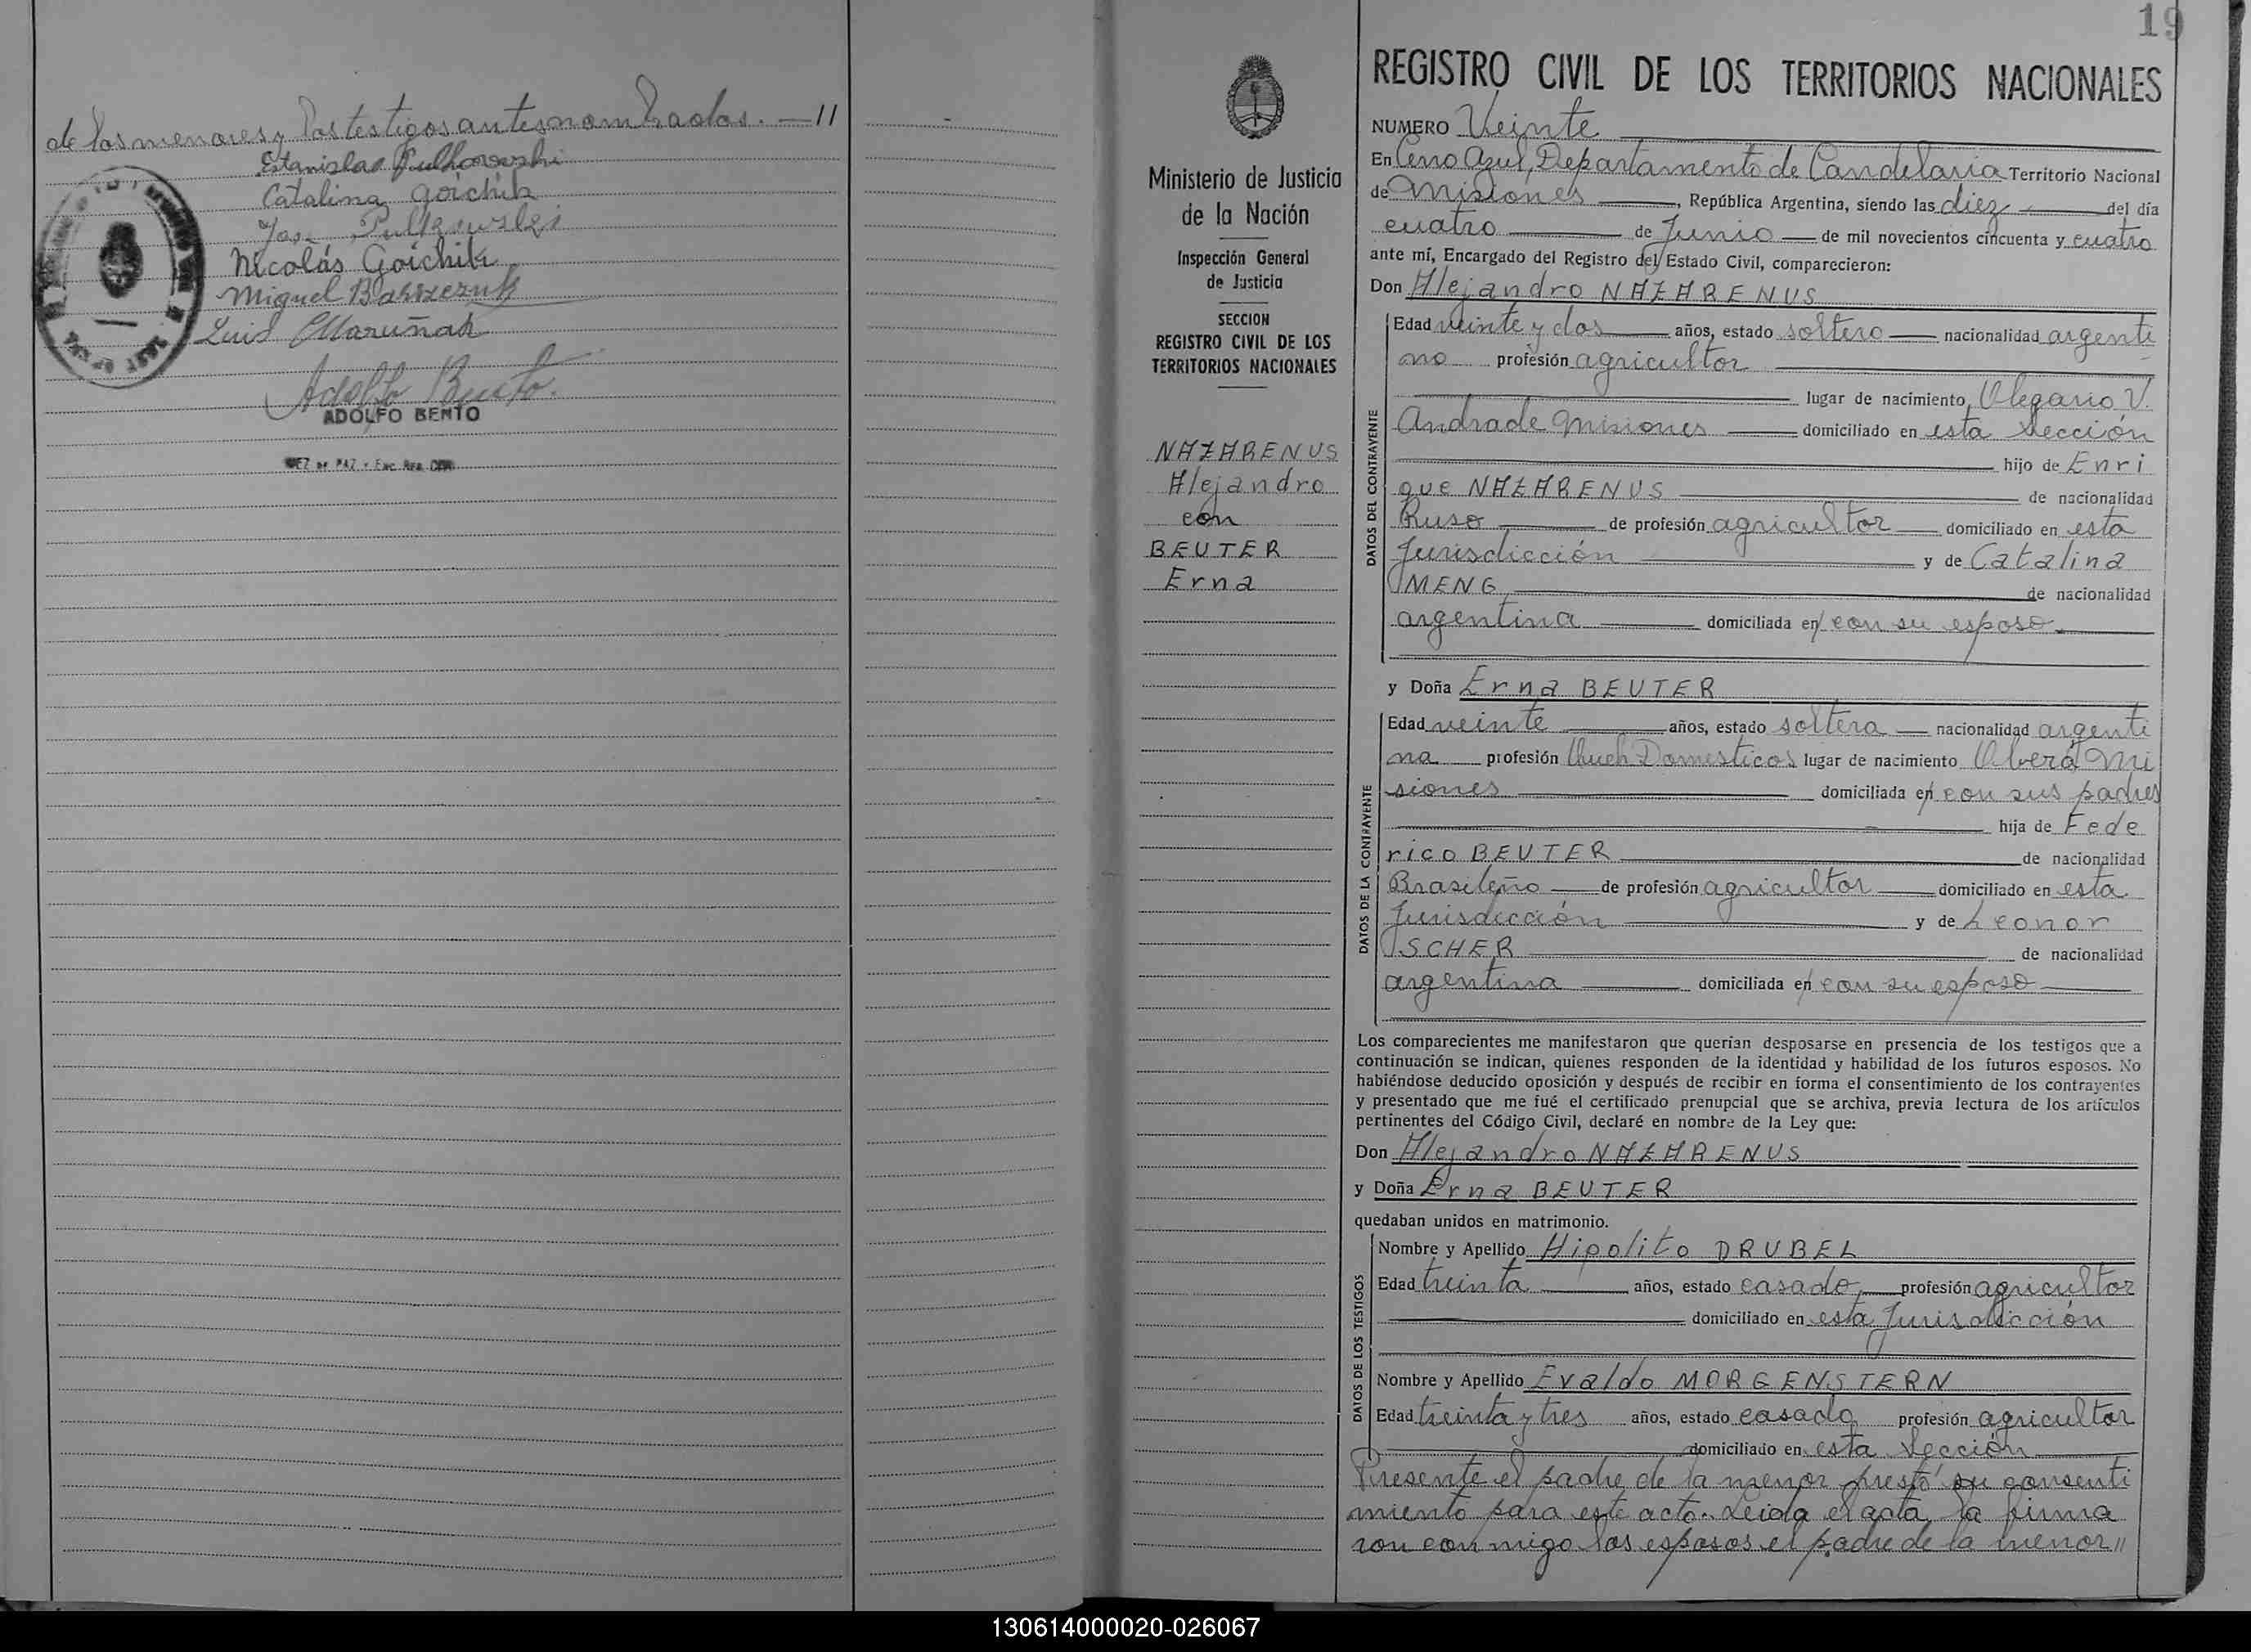 de los menores y los testigos antesnombrados. — //
Estanislao Pulkowski
Catalina Goichik
José Pulkowski
Nicolás Goichik
Miguel
Luis Maruñak
Adolfo Bento.
ADOLFO BENTO
JUEZ DE PAZ y Enc. Reg. Civil
19
Ministerio de Justicia
de la Nación
Inspección General
de Justicia
SECCION
REGISTRO CIVIL DE LOS
TERRITORIOS NACIONALES
NAZARENUS
Alejandro
con
BEUTER
Erna
REGISTRO CIVIL DE LOS TERRITORIOS NACIONALES
NUMERO Veinte
En Cerro Azul, Departamento de Candelaria Territorio Nacional
de Misiones, República Argentina, siendo las diez del día
cuatro de Junio de mil novecientos cincuenta y cuatro
ante mí, Encargado del Registro del Estado Civil, comparecieron:
Don Alejandro NAZARENUS
DATOS DEL CONTRAYENTE
Edad veinte y dos años, estado soltero nacionalidad argenti
no profesión agricultor
lugar de nacimiento Olegario V.
Andrade Misiones domiciliado en esta Sección
hijo de Enri
que NAZARENUS de nacionalidad
Ruso de profesión agricultor domiciliado en esta
Jurisdicción y de Catalina
MENG de nacionalidad
argentina domiciliada en/ con su esposo
y Doña Erna BEUTER
DATOS DE LA CONTRAYENTE
Edad veinte años, estado soltera nacionalidad argenti
na profesión Queh Domesticos lugar de nacimiento Oberá Mi
siones domiciliada en/ con sus padres
hija de Fede
rico BEUTER de nacionalidad
Brasileño de profesión agricultor domiciliado en esta
Jurisdicción y de Leonor
SCHER de nacionalidad
argentina domiciliada en/ con su esposo
Los comparecientes me manifestaron que querían desposarse en presencia de los testigos que a
continuación se indican, quienes responden de la identidad y habilidad de los futuros esposos. No
habiéndose deducido oposición y después de recibir en forma el consentimiento de los contrayentes
y presentado que me fué el certificado prenupcial que se archiva, previa lectura de los artículos
pertinentes del Código Civil, declaré en nombre de la Ley que:
Don Alejandro NAZARENUS
y Doña Erna BEUTER
quedaban unidos en matrimonio.
DATOS DE LOS TESTIGOS
Nombre y Apellido Hipolito DRUBEL
Edad treinta años, estado casado profesión agricultor
domiciliado en esta Jurisdicción
Nombre y Apellido Evaldo MORGENSTERN
Edad treinta y tres años, estado casado profesión agricultor
domiciliado en esta Sección
Presente el padre de la menor prestó su consenti
miento para este acto. Leida el acta la firma
ron conmigo los esposos el padre de la menor //
130614000020-026067